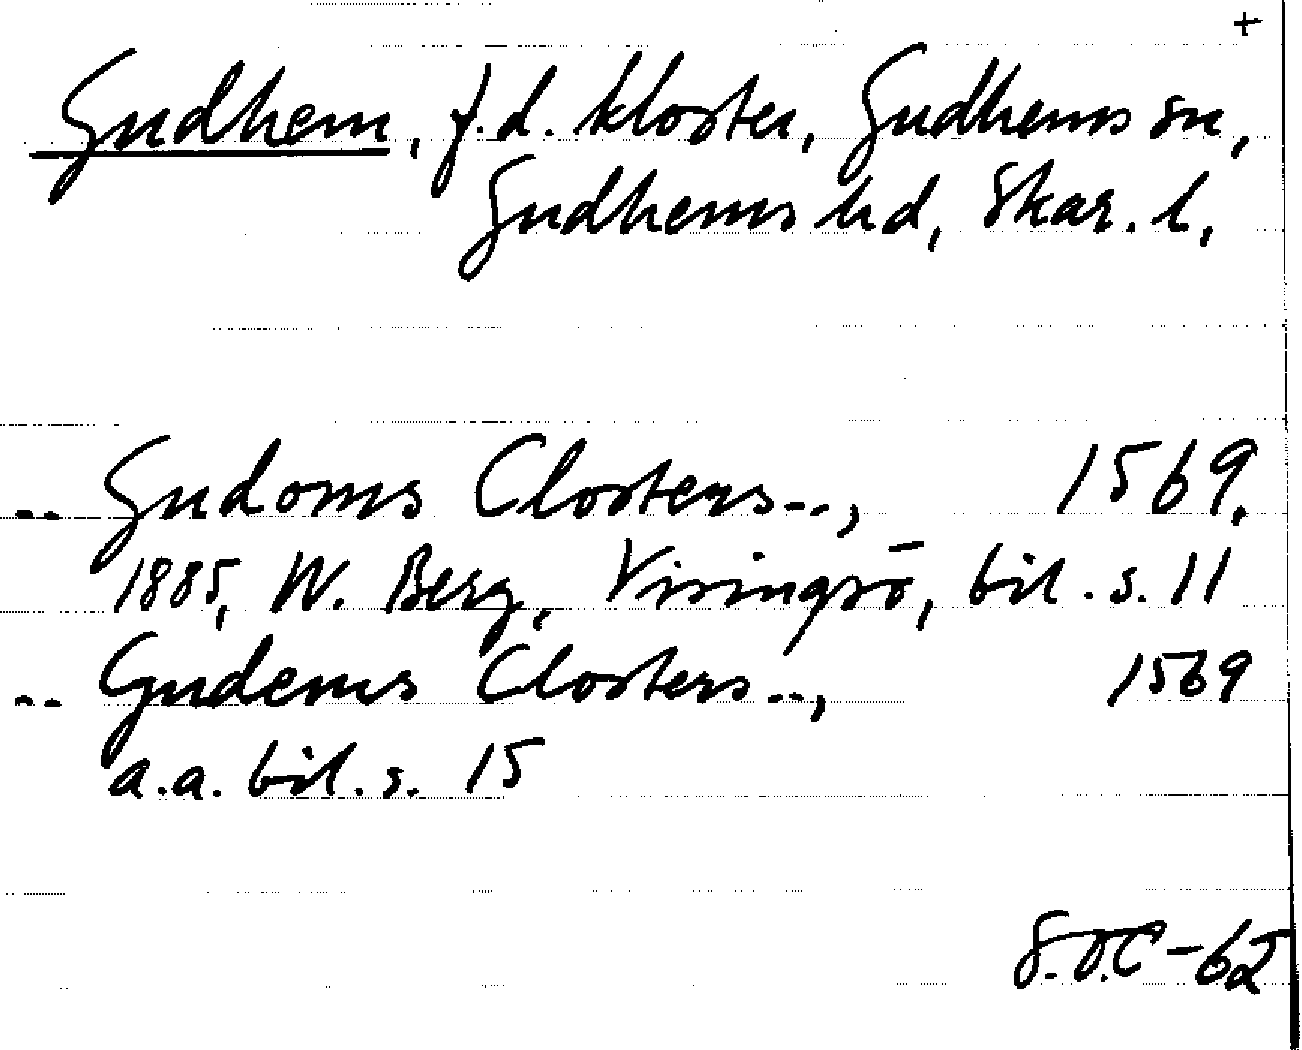 +
Gudhem, f.d. kloster, Gudhems sn,
Gudhems hd, Skar. l.
.. Gudoms Closters.., 1569.
1885, W. Berg, Visingsö, bil. s. 11
.. Gudems Closters.., 1569
a.a. bil. s. 15
S.O.C-62